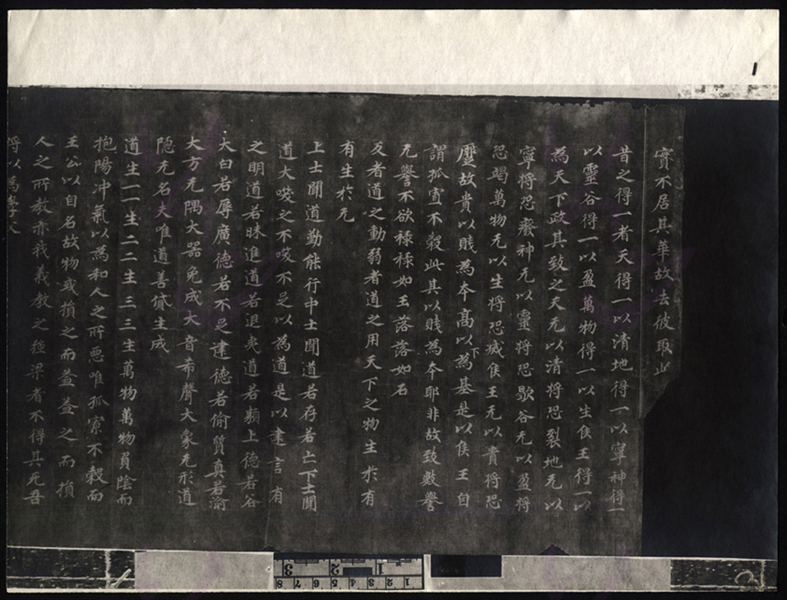 實不居其華故去彼取此
昔之得一者天得一以清地得一以寧神得一
以靈谷得一以盈萬物得一以生侯王得一以
為天下政其致之天无以清將恐裂地无以
寧將恐癈神无以靈將恐歇谷无以盈將
恐竭萬物无以生將恐滅侯王无以貴將恐
蹷故貴以賤為本高以下為基是以侯王自
謂孤寡不穀此其以賤為本耶非故致數譽
无譽不欲祿祿如玉落落如石
反者道之動弱者道之用天下之物生於有
有生於无
上士聞道勤能行中士聞道若存若亡下士聞
道大咲之不咲不足以為道是以建言有
之明道若昧進道若退夷道若類上德若谷
大白若辱廣德若不足建德若偷質真若渝
大方无隅大器免成大音希聲大象无形道
隱无名夫唯道善貸生成
道生一一生二二生三三生萬物萬物負陰而
抱陽冲氣以為和人之所惡唯孤寡不穀而
王公以自名故物或損之而益益之而損
人之所教亦我義教之強梁者不得其死吾
將以為學父